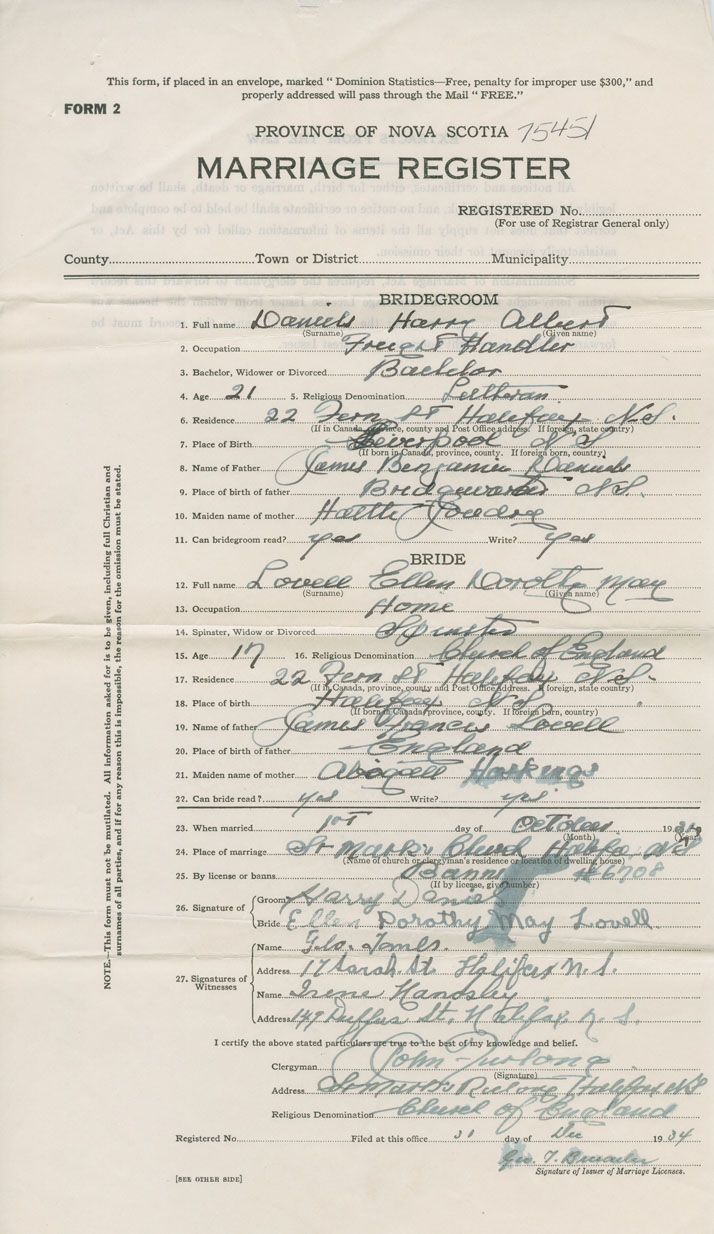 This form, if placed in an envelope, marked " Dominion Statistics—Free, penalty for improper use $300," and
properly addressed will pass through the Mail " FREE."
FORM 2
PROVINCE OF NOVA SCOTIA 75451
MARRIAGE REGISTER
REGISTERED No.
(For use of Registrar General only)
County Town or District Municipality
BRIDEGROOM
1. Full name Daniels Harry Albert
(Surname) (Given name)
2. Occupation Freight Handler
3. Bachelor, Widower or Divorced Bachelor
4. Age 21 5. Religious Denomination Lutheran
6. Residence 22 Fern St Halifax N.S.
(If in Canada, place, county and Post Office address. If foreign, state country)
7. Place of Birth Liverpool N S
(If born in Canada, province, county. If foreign born, country)
8. Name of Father James Benjamin Daniels
9. Place of birth of father Bridgewater N.S.
10. Maiden name of mother Hattie Joudrey
11. Can bridegroom read? yes Write? yes
BRIDE
12. Full name Lovell Ellen Dorothy May
(Surname) (Given name)
13. Occupation Home
14. Spinster, Widow or Divorced Spinster
15. Age 17 16. Religious Denomination Church of England
17. Residence 22 Fern St Halifax N.S.
(If in Canada, province, county and Post Office Address. If foreign, state country)
18. Place of birth Halifax N S
(If born in Canada, province, county. If foreign born, country)
19. Name of father James Francis Lovell
20. Place of birth of father England
21. Maiden name of mother Abigall Hoskings
22. Can bride read? yes Write? yes
23. When married 1st day of October 1934
(Month) (Year)
24. Place of marriage St Mark's Church Halifax N S
(Name of church or clergyman's residence or location of dwelling house)
25. By license or banns Banns #6708
(If by license, give number)
26. Signature of
Groom Harry Daniel
Bride Ellen Dorothy May Lovell
27. Signatures of Witnesses
Name Geo.
Address 17 Sarah St. Halifax N. S.
Name Irene Handsley
Address 147 Duffus St, Halifax N. S.
I certify the above stated particulars are true to the best of my knowledge and belief.
Clergyman John Furlong
(Signature)
Address St Mark's Rectory Halifax NS
Religious Denomination Church of England
Registered No. Filed at this office 31 day of Dec 1934
Geo. T.
Signature of Issuer of Marriage Licenses.
[SEE OTHER SIDE]
NOTE.—This form must not be mutilated. All information asked for is to be given, including full Christian and
surnames of all parties, and if for any reason this is impossible, the reason for the omission must be stated.